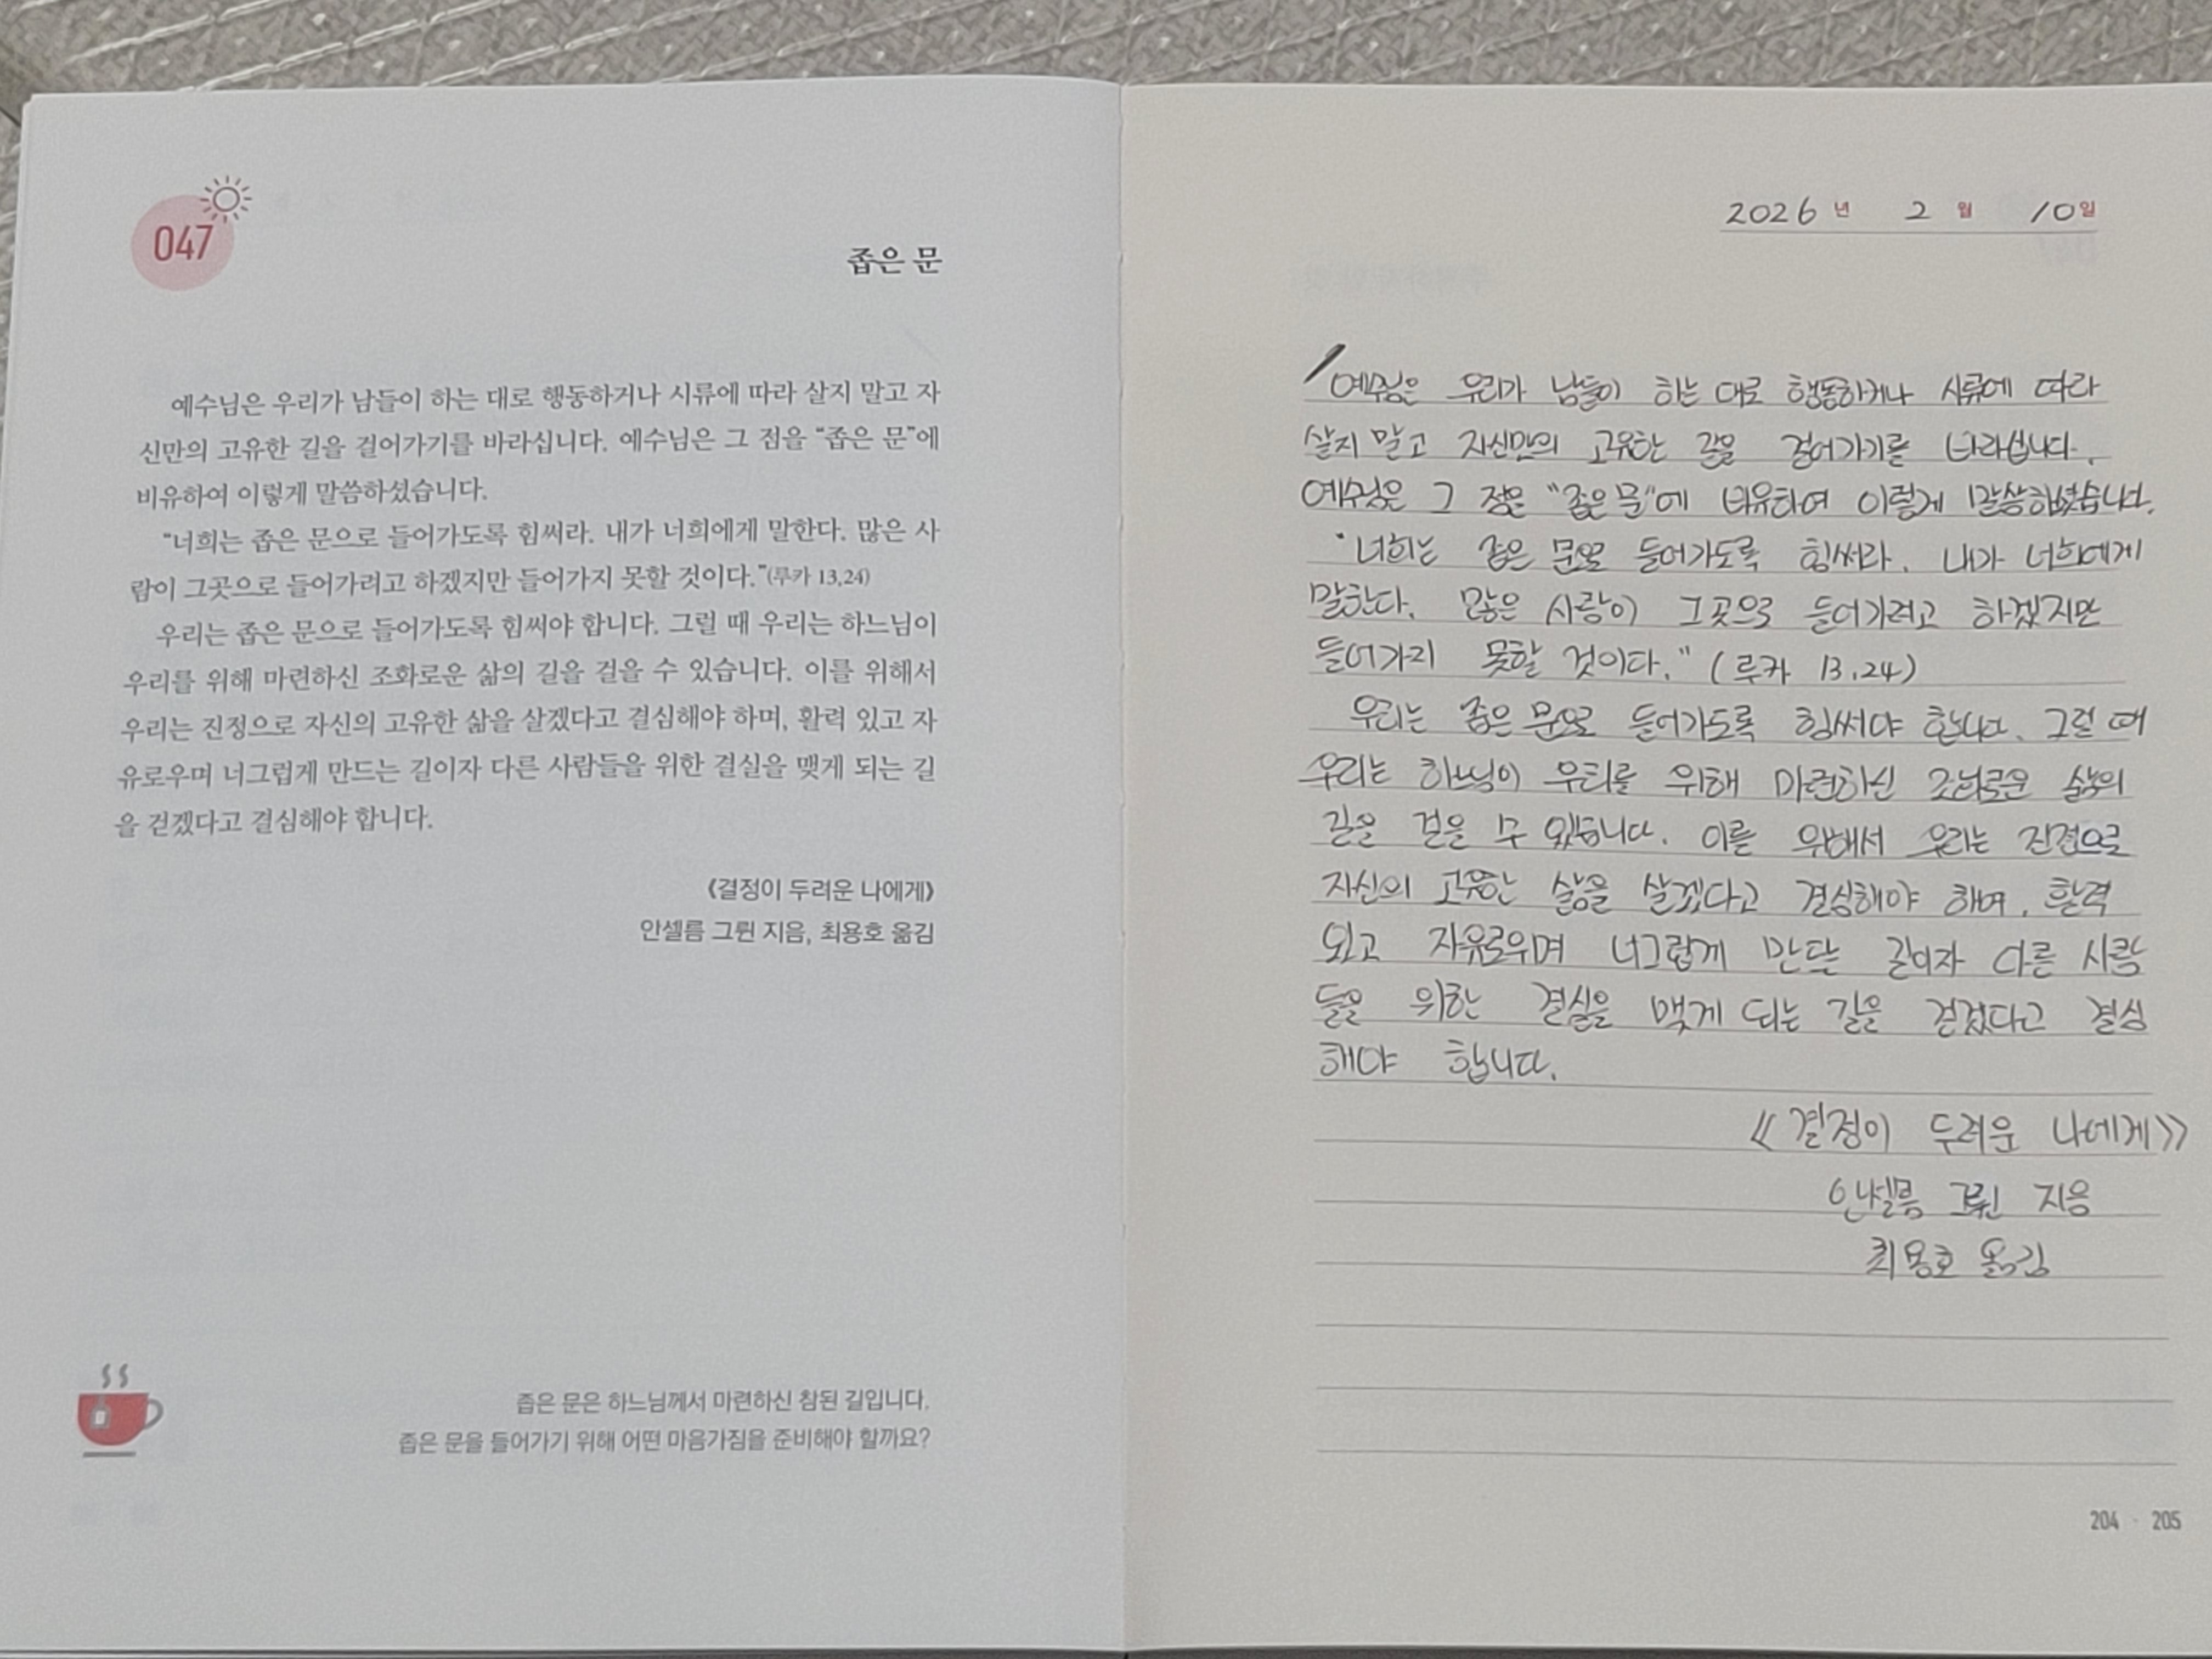 047
좁은 문
예수님은 우리가 남들이 하는 대로 행동하거나 시류에 따라 살지 말고 자
신만의 고유한 길을 걸어가기를 바라십니다. 예수님은 그 점을 “좁은 문”에
비유하여 이렇게 말씀하셨습니다.
“너희는 좁은 문으로 들어가도록 힘써라. 내가 너희에게 말한다. 많은 사
람이 그곳으로 들어가려고 하겠지만 들어가지 못할 것이다.”(루카 13,24)
우리는 좁은 문으로 들어가도록 힘써야 합니다. 그럴 때 우리는 하느님이
우리를 위해 마련하신 조화로운 삶의 길을 걸을 수 있습니다. 이를 위해서
우리는 진정으로 자신의 고유한 삶을 살겠다고 결심해야 하며, 활력 있고 자
유로우며 너그럽게 만드는 길이자 다른 사람들을 위한 결실을 맺게 되는 길
을 걷겠다고 결심해야 합니다.
《결정이 두려운 나에게》
안셀름 그륀 지음, 최용호 옮김
좁은 문은 하느님께서 마련하신 참된 길입니다.
좁은 문을 들어가기 위해 어떤 마음가짐을 준비해야 할까요?
2026년 2월 10일
예수님은 우리가 남들이 하는 대로 행동하거나 시류에 따라
살지 말고 자신만의 고유한 길을 걸어가기를 바라십니다.
예수님은 그 점은 "좁은 문"에 비유하여 이렇게 말씀하셨습니다.
"너희는 좁은 문으로 들어가도록 힘써라. 내가 너희에게
말한다. 많은 사람이 그곳으로 들어가려고 하겠지만
들어가지 못할 것이다." (루카 13,24)
우리는 좁은 문으로 들어가도록 힘써야 한다. 그럴 때
우리는 하느님이 우리를 위해 마련하신 조화로운 삶의
길을 걸을 수 있습니다. 이를 위해서 우리는 진정으로
자신의 고유한 삶을 살겠다고 결심해야 하며, 활력
있고 자유로우며 너그럽게 만드는 길이자 다른 사람
들을 위한 결실을 맺게 되는 길을 걷겠다고 결심
해야 합니다.
《결정이 두려운 나에게》
안셀름 그륀 지음
최용호 옮김
204 · 205